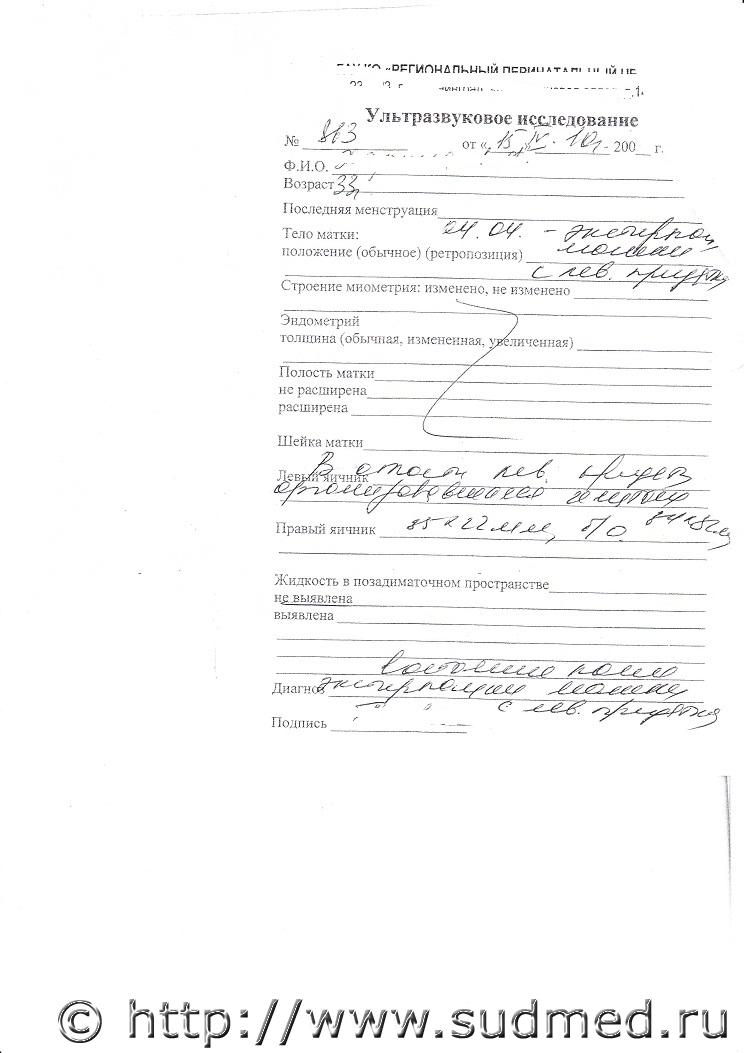 «РЕГИОНАЛЬНЫЙ ПЕРИНАТАЛЬНЫЙ ЦЕ
Ультразвуковое исследование
№ 813 от « 15 » IV. 10г. 200 г.
Ф.И.О.
Возраст 33г
Последняя менструация
Тело матки: 04.04. - экстирпац
положение (обычное) (ретропозиция) матки
с лев. придатк
Строение миометрия: изменено, не изменено
Эндометрий
толщина (обычная, измененная, увеличенная)
Полость матки
не расширена
расширена
Шейка матки
Левый яичник В области лев. придатк
организовавшаяся гематома
Правый яичник 35х22мм, б/о.
Жидкость в позадиматочном пространстве
не выявлена
выявлена
Состояние после
Диагноз экстирпации матки
с лев. придатка
Подпись
© http://www.sudmed.ru